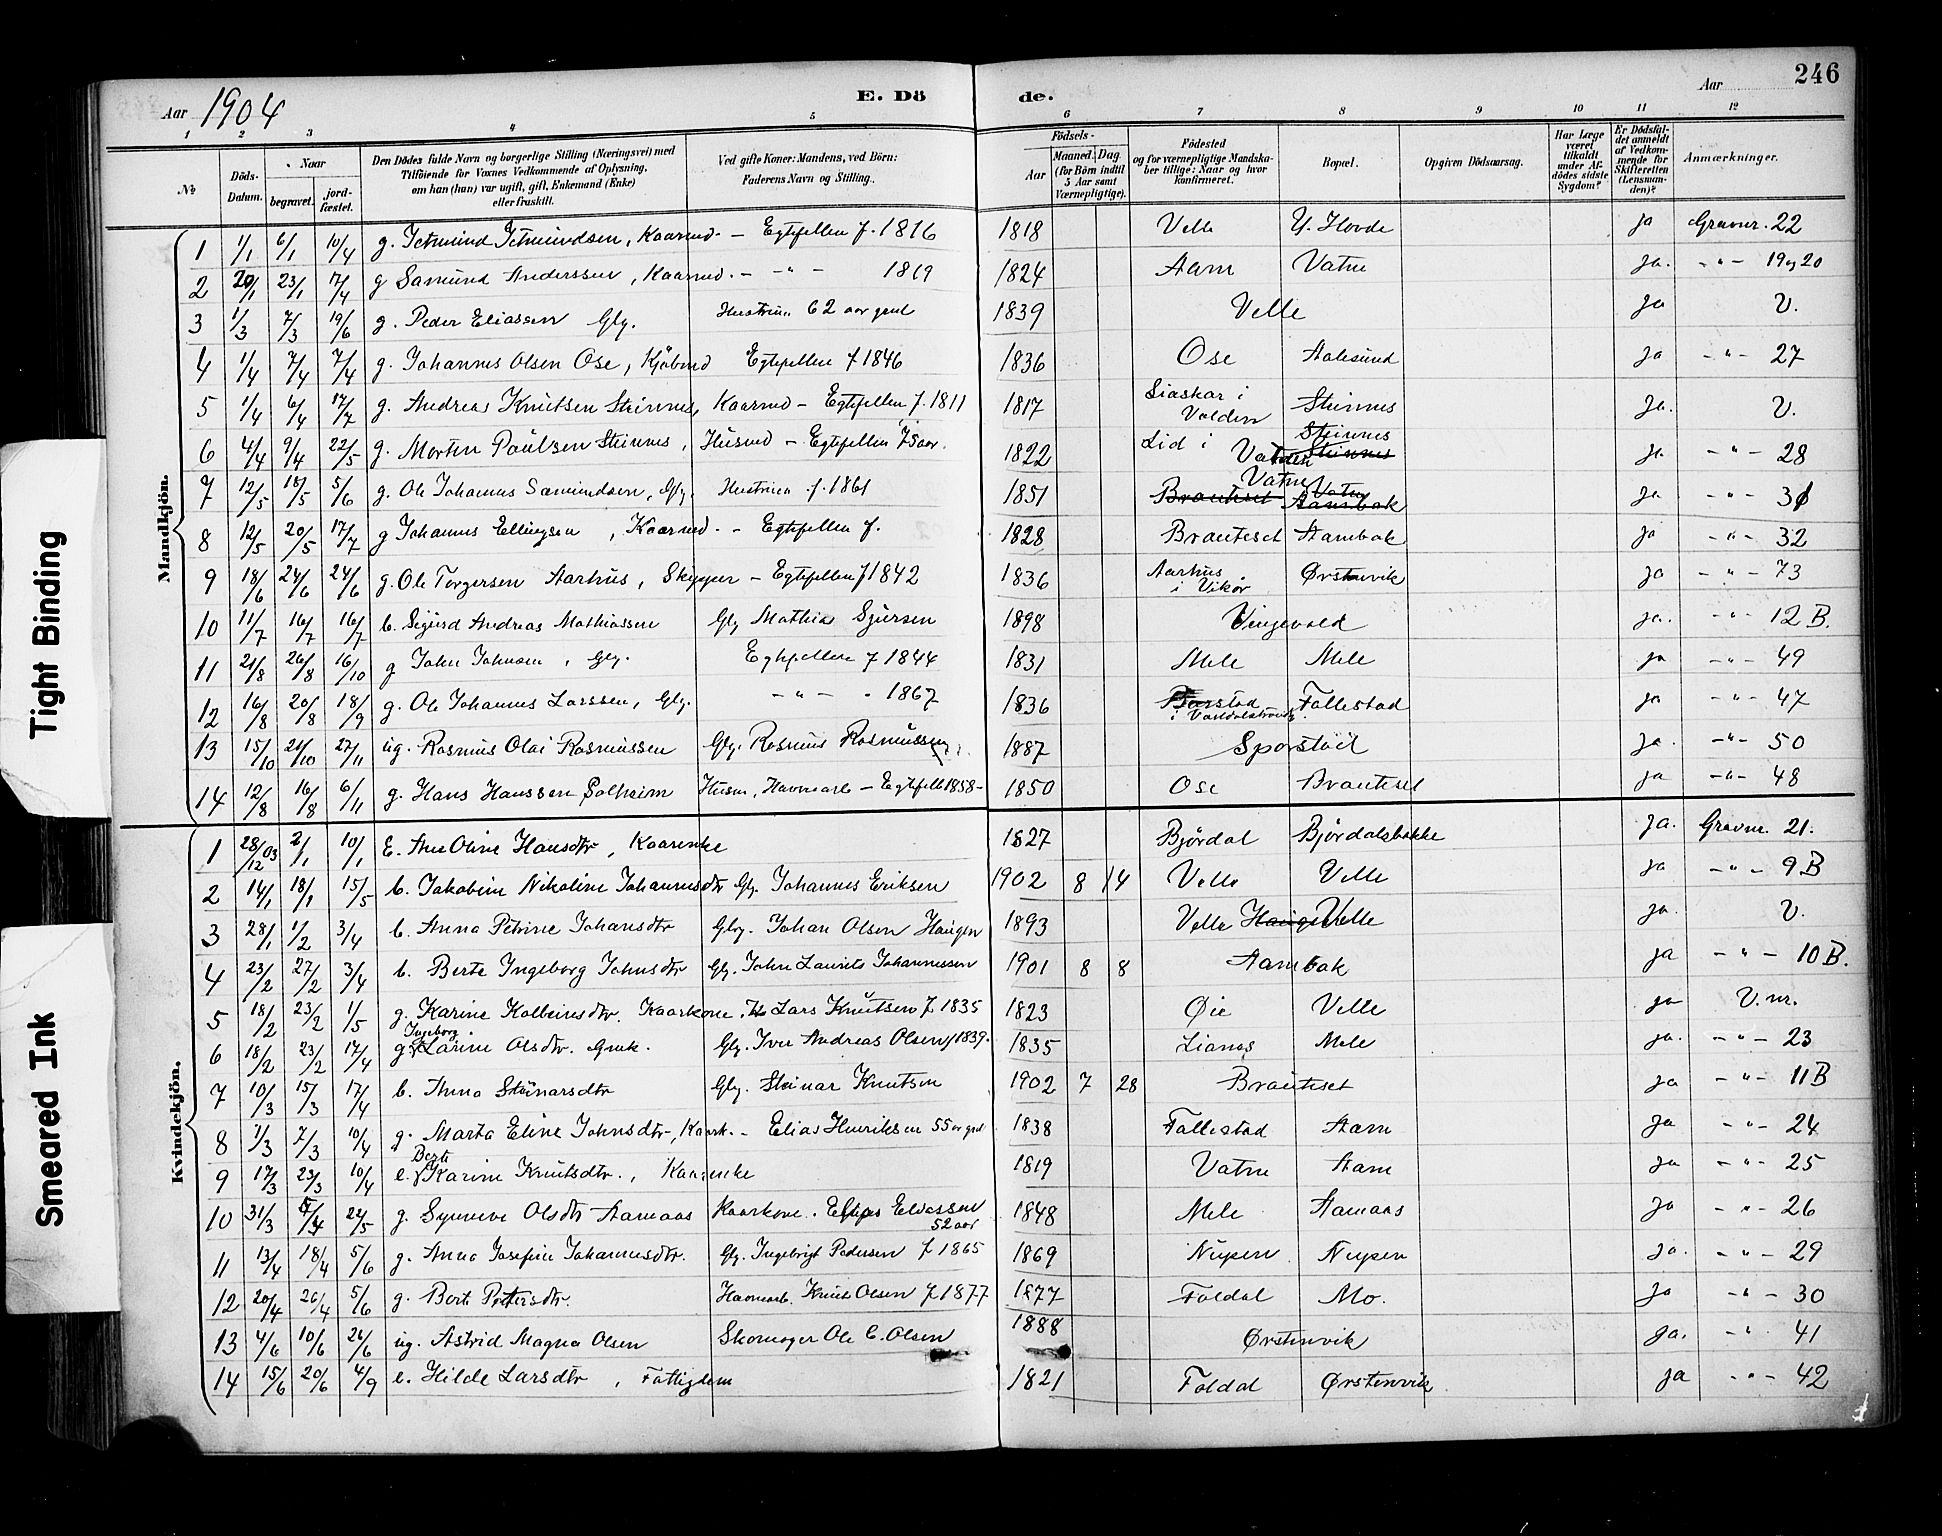 Aar 1904
E. Döde.
Aar
246
1 2 3 4 5 6 7 8 9 10 11 12
№
Döds-Datum.
Naar
begravet.
jord-fæstet.
Den Dödes fulde Navn og borgerlige Stilling (Næringsvei) med
Tilföiende for Voxnes Vedkommende af Oplysning,
om han (hun) var ugift, gift, Enkemand (Enke)
eller fraskilt.
Ved gifte Koner: Mandens, ved Börn:
Faderens Navn og Stilling.
Födsels-
Aar
Maaned. Dag
(for Börn indtil
5 Aar samt
Værnepligtige).
Födested
og for værnepligtige Mandska-
ber tillige: Naar og hvor
konfirmeret.
Bopæl.
Opgiven Dödsaarsag.
Har Læge
været
tilkaldt
under Af-
dödes sidste
Sygdom?
Er Dödsfal-
det anmeldt
af Vedkom-
mende for
Skifteretten
(Lensman-
den)?
Anmærkninger.
Mandkjön.
1 1/1 6/1 10/4 g. Ietmund Ietmundsen, Kaarmd. – Egtefellen f. 1816 1818 Velle Y. Hovde ja Gravnr. 22
2 20/1 23/1 7/4 g Samund Anderssen, Kaarmd. – – " – 1819 1824 Aam Vatne ja. – " – 19 og 20
3 1/3 7/3 19/6 g. Peder Eliassen Glg. Hustruen 62 aar gml 1839 Velle ja V.
4 1/4 7/4 7/4 g. Johannes Olsen Ose, Kjöbmd Egtefellen f 1846 1836 Ose Aalesund ja – " – 27
5 1/4 6/4 17/7 g. Andreas Knutsen Steinnes, Kaarmd – Egtefellen f. 1811 1817 Siaskar i Volden Steinnes ja. V.
6 4/4 9/4 22/5 g. Morten Paulsen Steinnes, Husmd – Egtefellen 75 aar. 1822 Lid i Vatnen Steinnes Steinnes ja. – " – 28
7 12/5 18/5 5/6 g. Ole Johannes Samundsen, Glg. Hustruen f. 1861 1851 Brauteset Vatne Aambak Vatne ja – " – 31
8 12/5 20/5 17/7 g Johannes Ellingsen, Kaarmd. – Egtefellen f. 1828 Brauteset Aambak ja – " – 32
9 18/6 24/6 24/6 g. Ole Torgersen Aarhus, Skipper – Egtefellen f 1842 1836 Aarhus i Vikör Ørstenvik ja – " – 73
10 11/7 16/7 16/7 b. Sigurd Andreas Mathiassen Glg Mathias Sjursen 1898 Vingevold ja. – " – 12 B.
11 21/8 26/8 16/10 g John Johnsen, Glg. Egtefellen f 1844 1831 Mele Mele ja – " – 49
12 16/8 20/8 18/9 g. Ole Johannes Larssen, Glg. – " – . 1867 1836 i Vartdalstrand. Follestad ja – " – 47
13 15/10 21/10 27/11 ug. Rasmus Olai Rasmussen Glg. Rasmus Rasmussen 1887 Sporstöil ja. – " – 50
14 12/8 16/8 6/11 g. Hans Hanssen Solheim Husm, Havnearb – Egtefelle 1858 – 1850 Ose Brauteset ja – " – 48
Kvindekjön.
1 28/12 03 2/1 10/1 E. Ane Oline Hansdtr, Kaarenke 1827 Bjørdal Bjørdalsbakke ja. Gravnr. 21.
2 14/1 18/1 15/5 b. Jakobine Nikoline Johannesdtr Glg. Johannes Eriksen 1902 8 14 Velle Velle ja – " – 9 B
3 28/1 1/2 3/4 b. Anna Petrine Johansdtr Glg. Johan Olsen Haugen 1893 Velle Haugen Velle ja. V.
4 23/2 27/2 3/4 b. Berte Ingeborg Johnsdtr Glg. John Laurits Johannessen 1901 8 8 Aambak ja – " – 10 B.
5 18/2 23/2 1/5 g. Karine Kolbeinsdtr. Kaarkone, Lars Knutsen f 1835 1823 Øie Velle ja V. nr.
6 18/2 23/2 17/4 g. Ingeborg Larine Olsdtr. Gmk. Glg. Iver Andreas Olsen f 1839. 1835 Lianes Mele ja. – " – 23
7 10/3 15/3 17/4 b. Anna Steinarsdtr Glg. Steinar Knutsen 1902 7 28 Brauteset ja – " – 11 B
8 1/3 7/3 10/4 g. Marta Eline Johnsdtr, Kaark. – Elias Henriksen 55 aar gml 1838 Follestad Aam ja – " – 24
9 17/3 23/3 10/4 e. Berte Karine Knutsdtr., Kaarenke 1819 Vatne Aam ja – " – 25
10 31/3 5/4 22/5 g. Synneve Olsdtr Aamaas Kaarkone. Elias Eliassen 52 aar 1848 Mele Aamaas ja – " – 26
11 13/4 18/4 5/6 g. Anna Josefine Johannesdtr. Glg. Ingebrigt Pedersen f 1865 1869 Nupen Nupen ja. – " – 29
12 20/4 26/4 5/6 g. Berte Petersdtr. Havnearb. Knut Olsen f 1877 1877 Foldal Mo. ja – " – 30
13 4/6 10/6 26/6 ug. Astrid Magna Olsen Skomager Ole C. Olsen 1888 Ørstenvik ja. – " – 41
14 15/6 20/6 4/9 e. Hilde Larsdtr, Fattiglem 1821 Foldal Ørstenvik ja – " – 42
Tight Binding
Smeared Ink